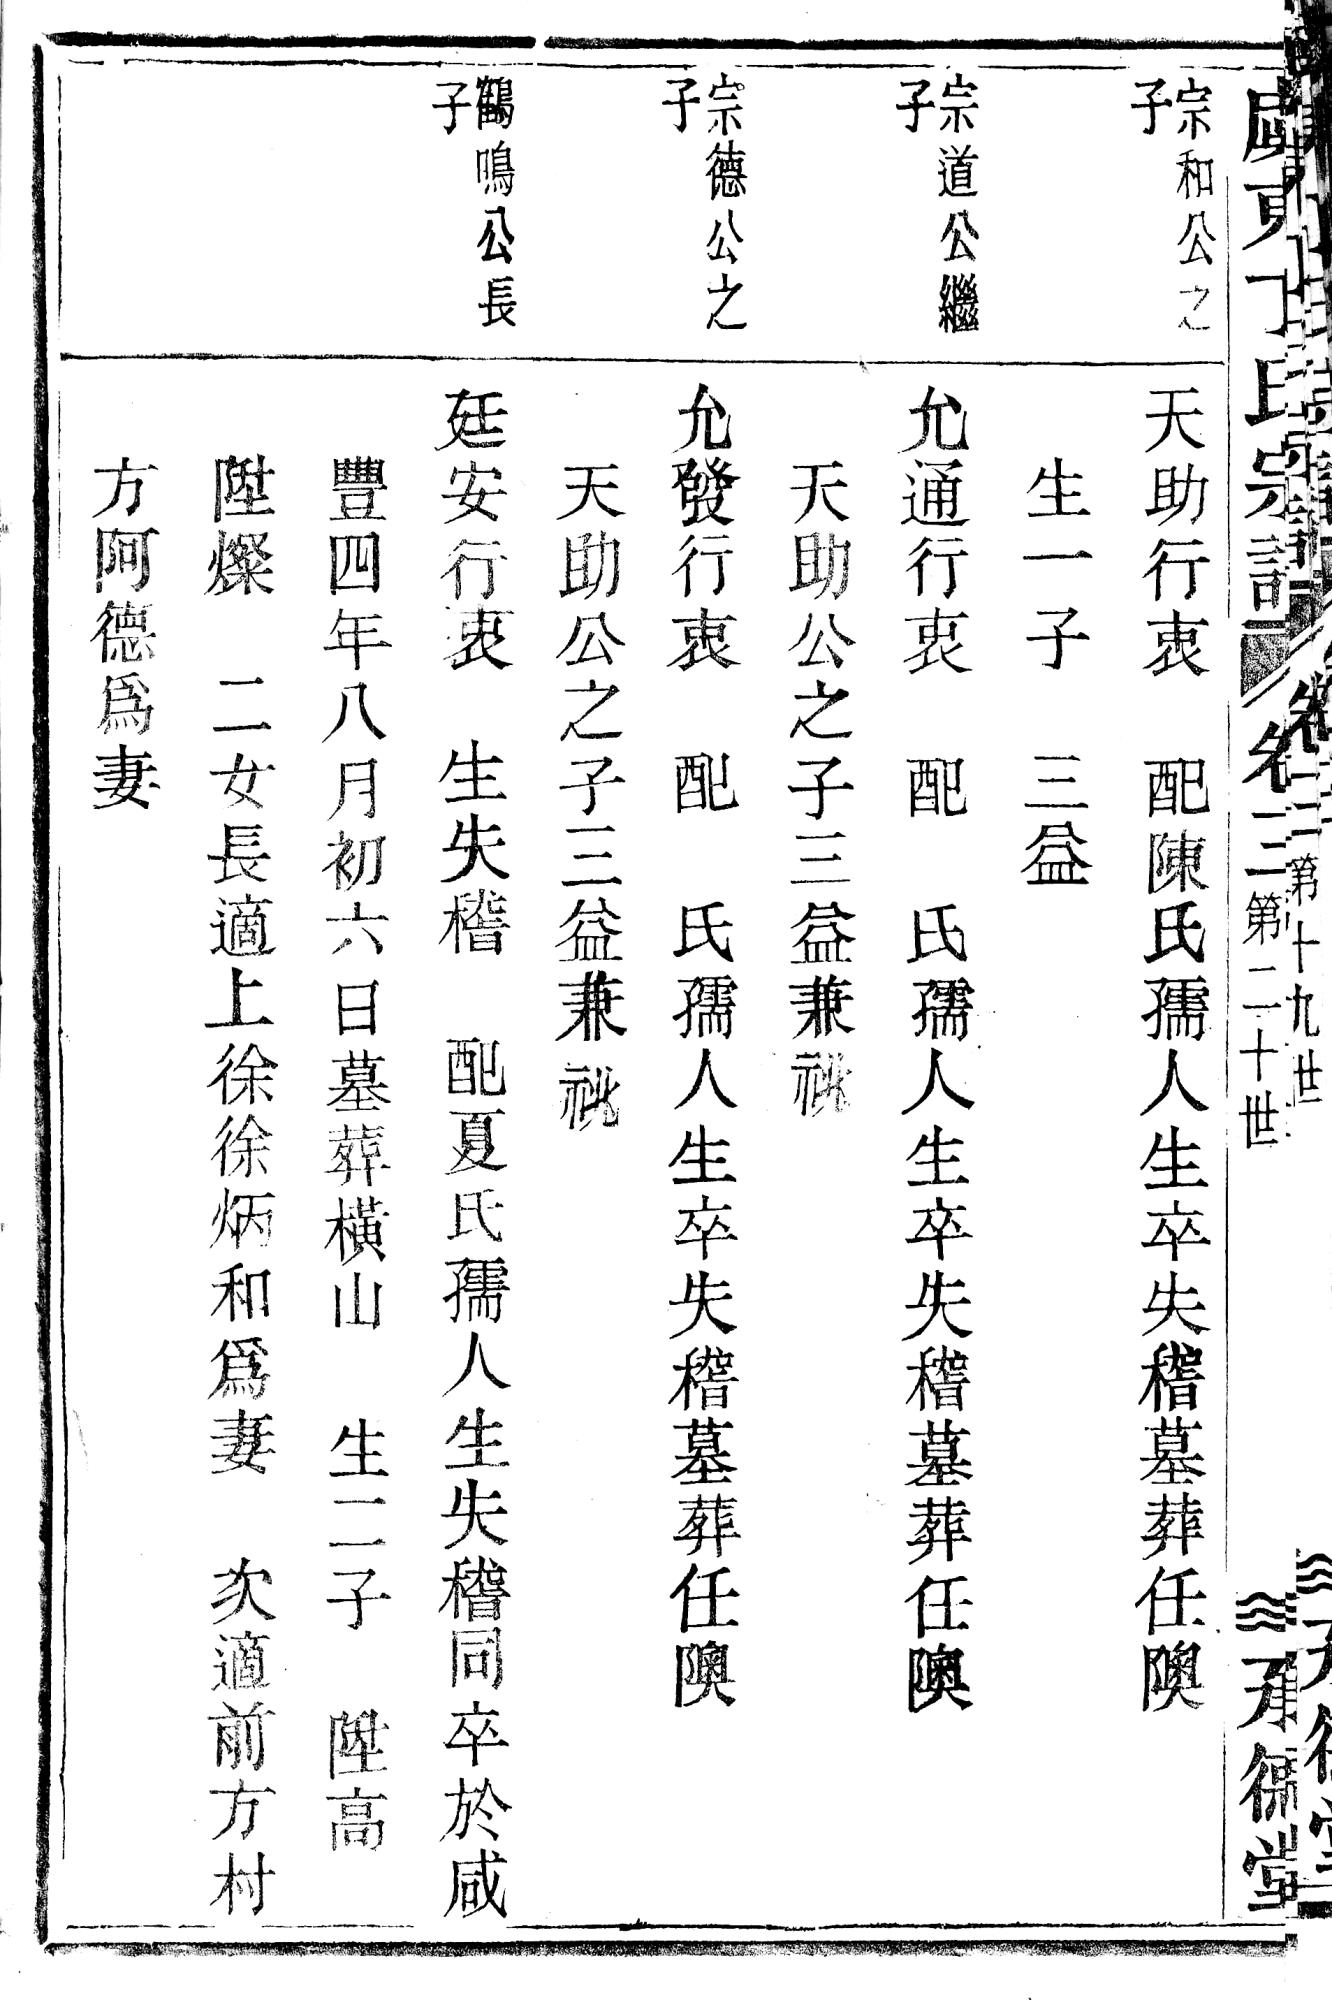 丁氏宗譜
卷三
第二十世
承德堂
第十九世
宗和公之
子
天助行衷　配陳氏孺人生卒失稽墓葬任隩
生一子　三益
宗道公繼
子
允通行衷　配　氏孺人生卒失稽墓葬任隩
天助公之子三益兼祧
宗德公之
子
允發行衷　配　氏孺人生卒失稽墓葬任隩
天助公之子三益兼祧
鶴鳴公長
子
廷安行衷　生失稽　配夏氏孺人生失稽同卒於咸
豐四年八月初六日墓葬橫山　生二子　陞高
陞燦　二女長適上徐徐炳和爲妻　次適前方村
方阿德爲妻